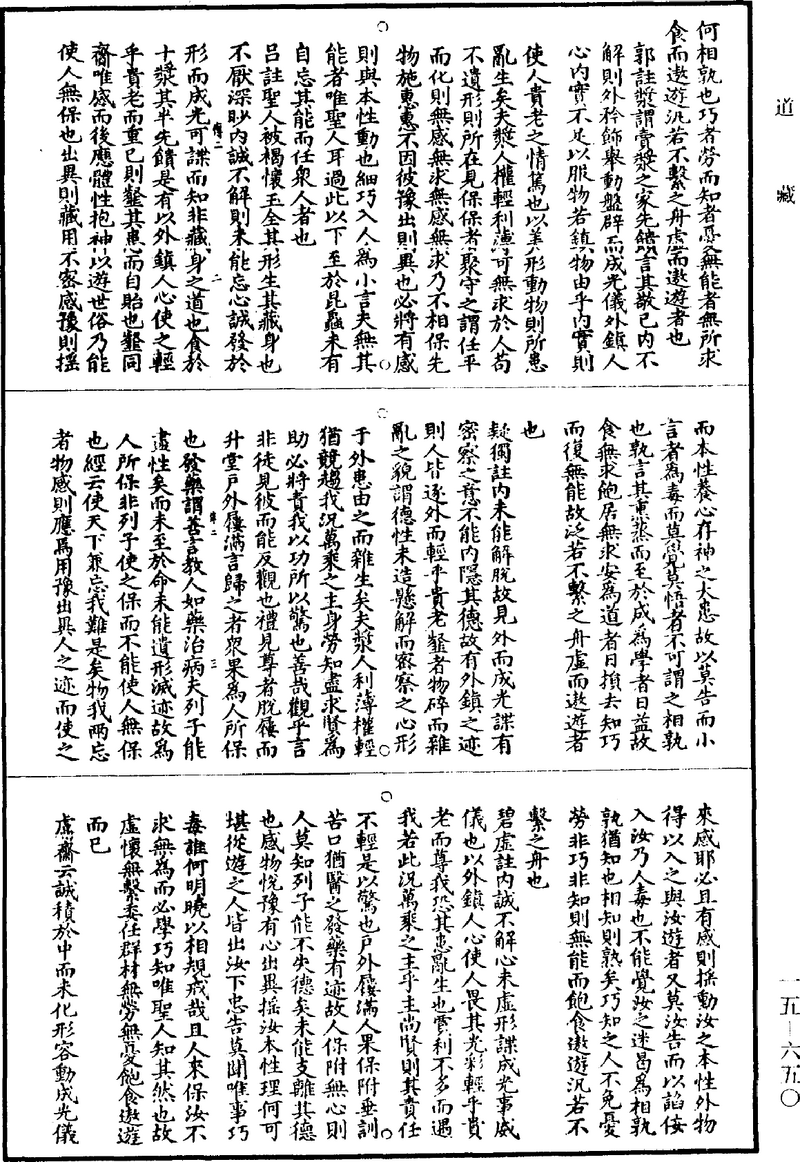 道藏
何相孰也巧者勞而知者憂無能者無所求
食而遨遊汎若不繫之舟虛而遨遊者也
郭註漿謂賣漿之家先饋言其敬己內不
解則外矜飾舉動盤辟而成光儀外鎮人
心內實不足以服物若鎮物由乎內實則
使人貴老之情篤也以美形動物則所患
亂生矣夫漿人權輕利薄可無求於人苟
不遺形則所在見保保者聚守之謂任平
而化則無感無求無感無求乃不相保先
物施惠惠不因彼豫出則異也必將有感
則與本性動也細巧入人為小言夫無其
能者唯聖人耳過此以下至於昆蟲未有
自忘其能而任衆人者也
呂註聖人被褐懷玉全其形生其藏身也
不厭深眇內誠不解則未能忘心誠發於
形而成光可諜而知非藏身之道也食於
十漿其半先饋是有以外鎮人心使之輕
乎貴老而重己則䪠其患而自貽也䪠同
齋唯感而後應體性抱神以遊世俗乃能
使人無保也出異則藏用不密感豫則搖
而本性養心存神之大患故以莫告而小
言者為毒而莫覺莫悟者不可謂之相孰
也孰言其熏蒸而至於成為學者日益故
食無求飽居無求安為道者日損去知巧
而復無能故泛若不繫之舟虛而遨遊者
也
疑獨註內未能解脫故見外而成光諜有
密察之意不能內隱其德故有外鎮之迹
則人皆逐外而輕乎貴老䪠者物碎而雜
亂之貌謂德性未造懸解而密察之心形
于外患由之而雜生矣夫漿人利薄權輕
猶競趨我況萬乘之主身勞知盡求賢為
助必將責我以功所以驚也善哉觀乎言
非徒見彼而能反觀也禮見尊者脫屨而
升堂戶外屨滿言歸之者衆果為人所保
也發藥謂善言教人如藥治病夫列子能
盡性矣而未至於命未能遺形滅迹故為
人所保非列子使之保而不能使人無保
也經云使天下兼忘我難是矣物我兩忘
者物感則應焉用豫出異人之迹而使之
來感耶必且有感則搖動汝之本性外物
得以入之與汝遊者又莫汝告而以諂佞
入汝乃人毒也不能覺汝之迷曷為相孰
孰猶知也相知則熟矣巧知之人不免憂
勞非巧非知則無能而飽食遨遊汎若不
繫之舟也
碧虛註內誠不解心未虛形諜成光事威
儀也以外鎮人心使人畏其光彩輕乎貴
老而尊我恐其患亂生也賣利不多而遇
我若此況萬乘之主乎主尚賢則其責任
不輕是以驚也戶外屨滿人果保附垂訓
苦口猶醫之發藥有迹故人保附無心則
人莫知列子能不失德矣未能支離其德
也感物悅豫有心出異搖汝本性理何可
堪從遊之人皆出汝下忠告莫聞唯事巧
毒誰何明曉以相規戒哉且人來保汝不
求無為而必學巧知唯聖人知其然也故
虛懷無繫委任群材無勞無憂飽食遨遊
而已
鬳齋云誠積於中而未化形容動成光儀
一五—六五〇